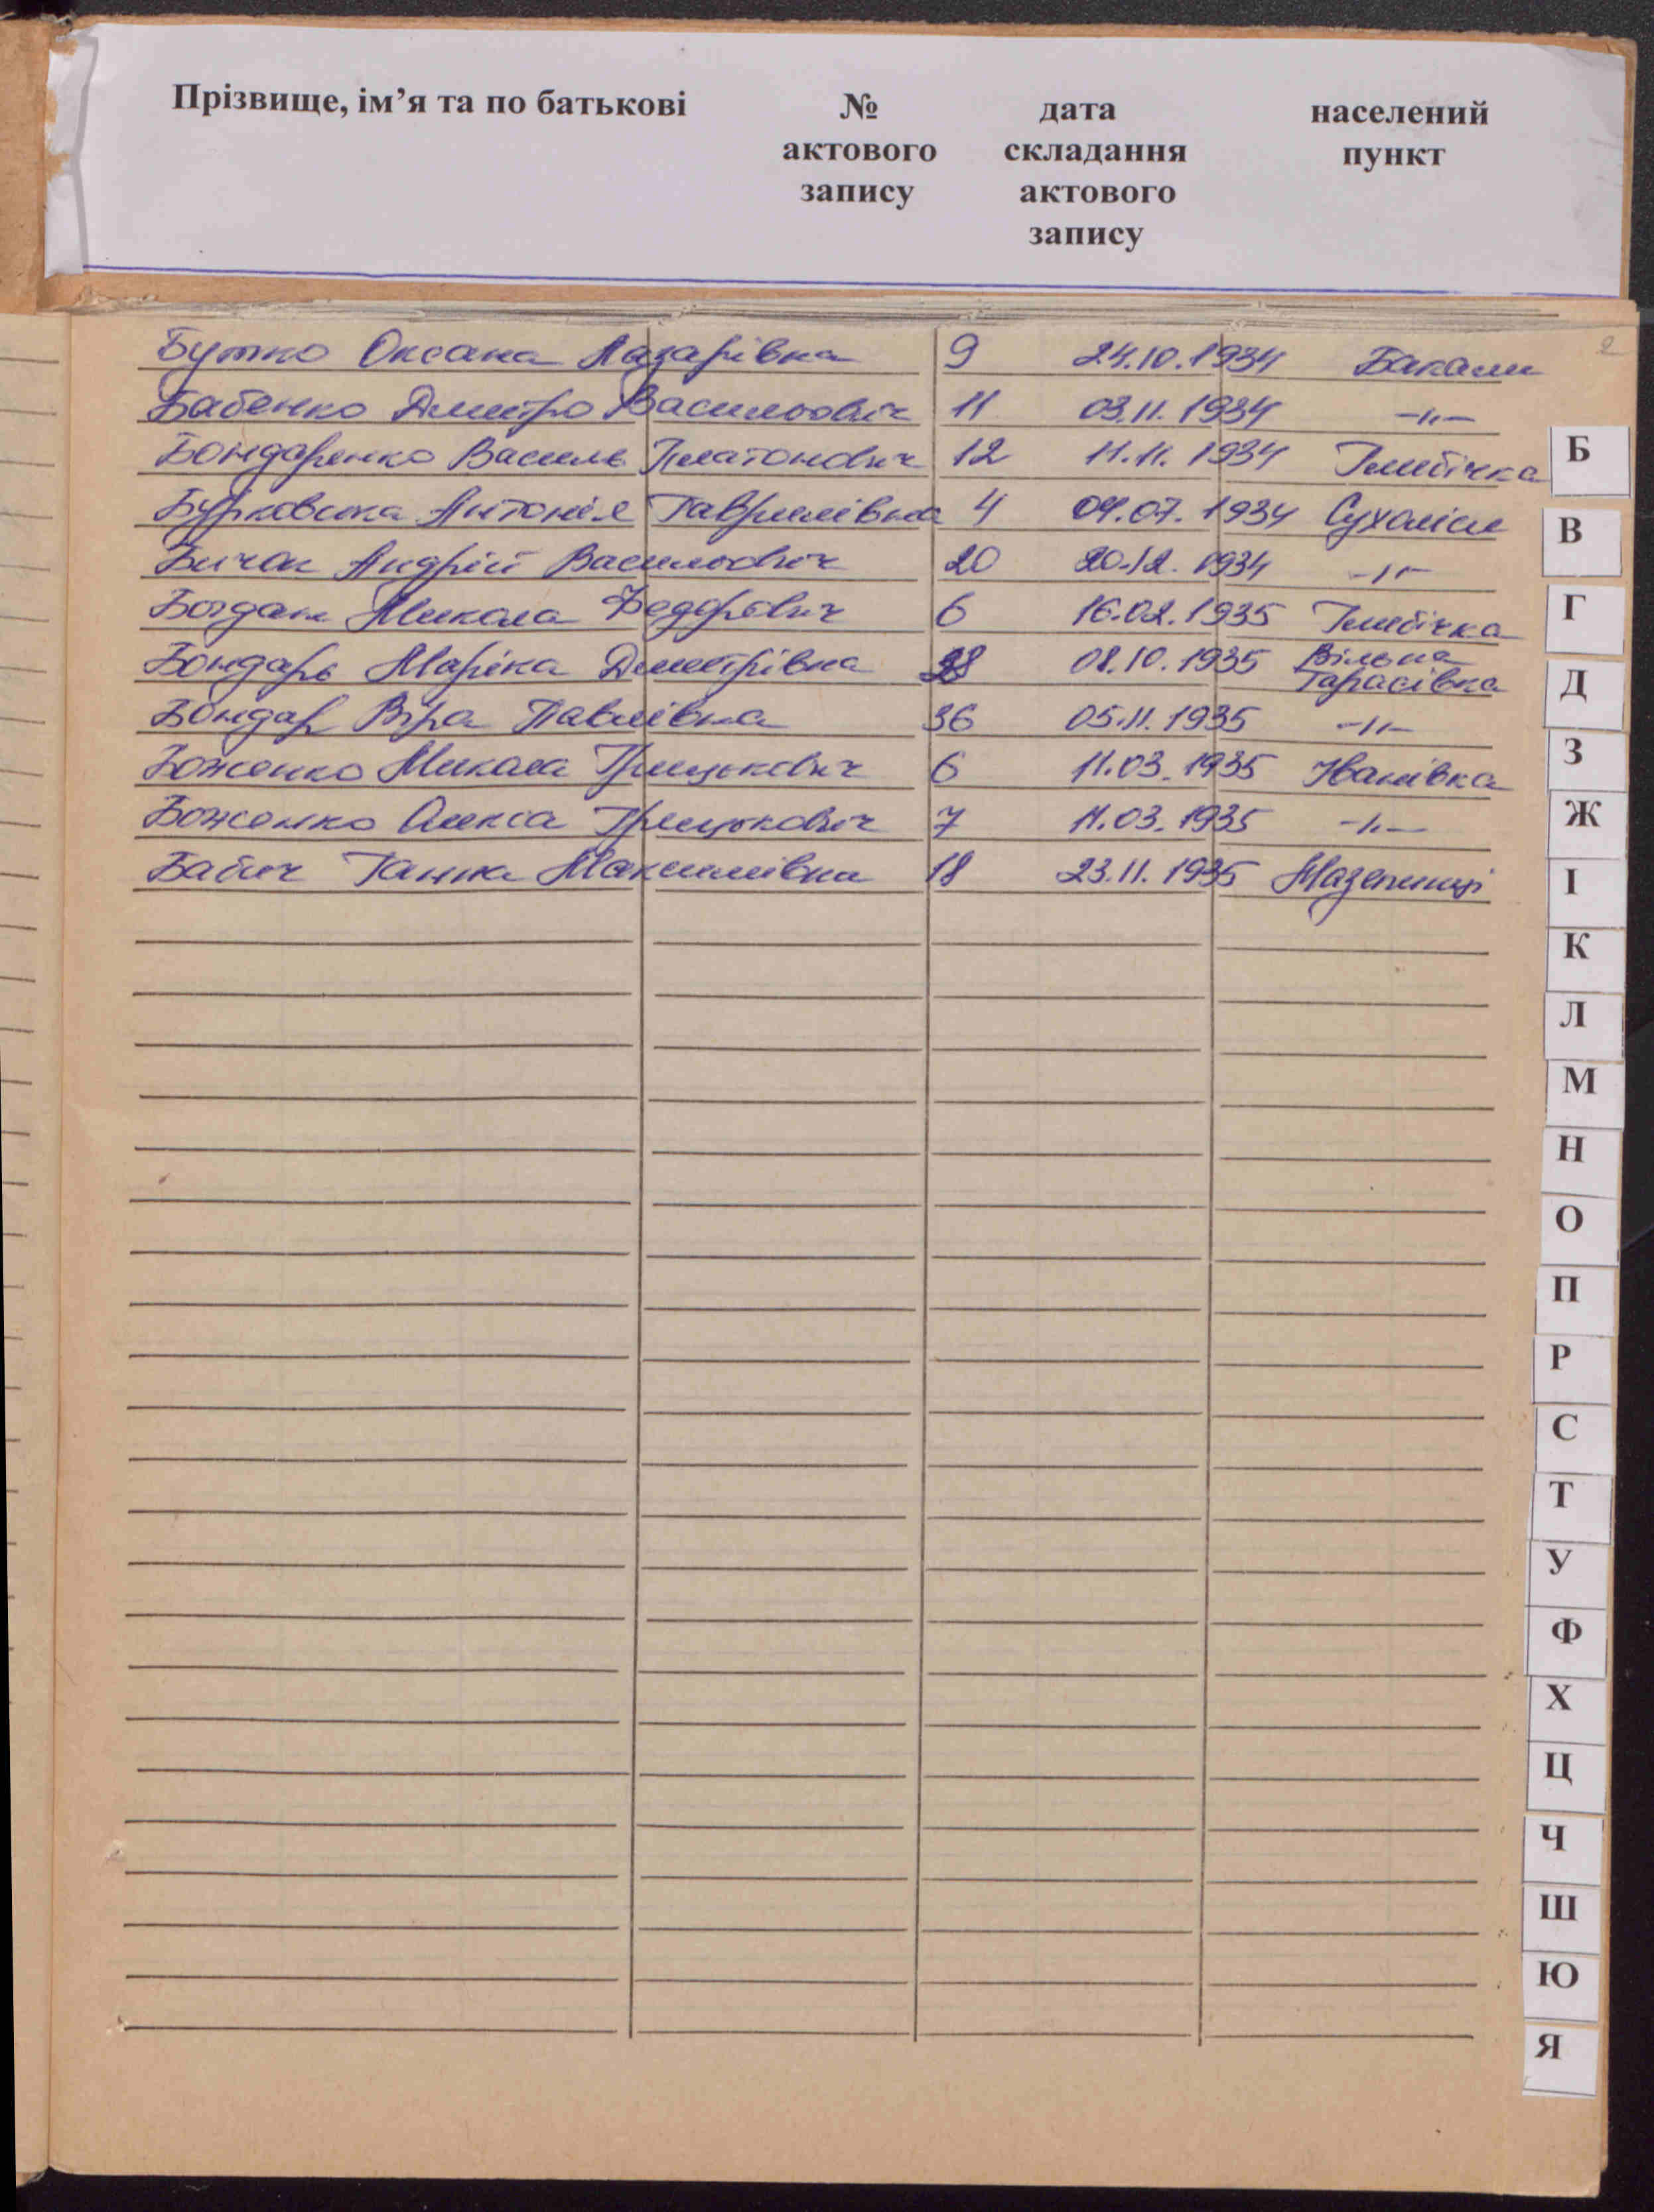 Прізвище, ім’я та по батькові № актового запису дата складання актового запису населений пункт
2
Бутко Оксана Лазарівна 9 24.10.1934 Бакали
Бабенко Дмитро Васильович 11 03.11.1934 -"-
Бондаренко Василь Платонович 12 11.11.1934 Глибічка
Бурковська Антоніл Гаврилівна 4 04.07.1934 Сухоліси
Бичок Андрій Васильович 20 20.12.1934 -"-
Богдан Микола Федорович 6 16.02.1935 Глибічка
Бондарь Маріка Дмитрівна 28 08.10.1935 Вільна Тарасівка
Бондар Віра Павлівна 36 05.11.1935 -"-
Боженко Микола Грицькович 6 11.03.1935 Іванівка
Боженко Олекса Грицькович 7 11.03.1935 -"-
Бабич Ганна Максимівна 18 23.11.1935 Мазепинці
Б
В
Г
Д
З
Ж
І
К
Л
М
Н
О
П
Р
С
Т
У
Ф
Х
Ц
Ч
Ш
Ю
Я